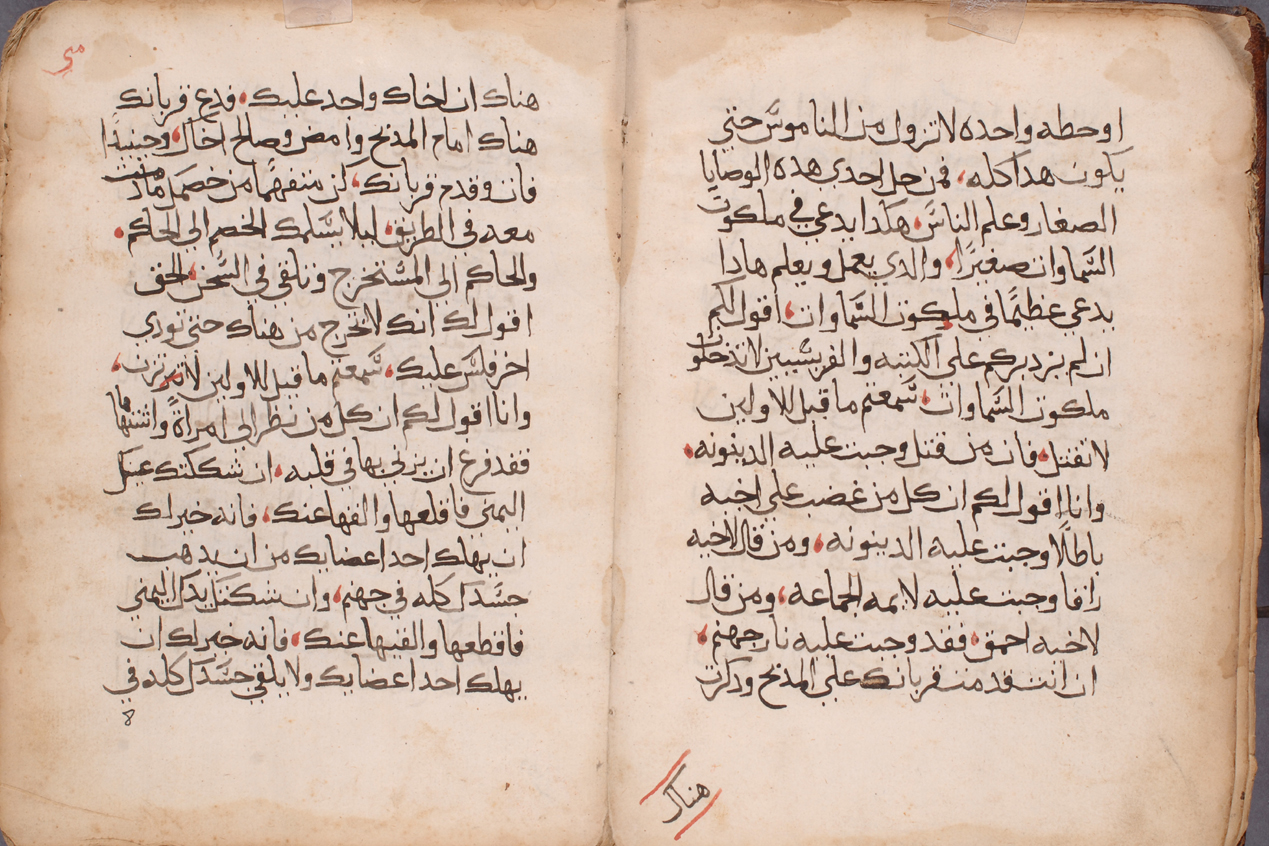 اوحطه واحده لاتزول من الناموس حتى
يكون هدا كله، فمن حل احدى هده الوصايا
الصغار وعلم الناس، هكدا يدعى في ملكوت
السماوات صغيرًا، والدي يعمل ويعلم هادا
يدعى عظيمًا في ملكوت السماوات، اقول لكم
ان لم يزد بركم على الكتبه والفريسيين لاتدخلو
ملكوت السماوات، سمعتم ما قيل للاولين
لاتقتل، فان من قتل وجبت عليه الدينونه،
وانا اقول لكم ان كل من غضب على اخيه
باطلًا وجبت عليه الدينونه، ومن قال لاخيه
راقا وجبت عليه لايمه الجماعه، ومن قال
لاخيه احمق، فقد وجبت عليه نار جهنم،
ان انت قدمت قربانك على المذبح ودكرت
هناك
هناك ان اخاك واجد عليك، فدع قربانك
هناك امام المدبح وامض وصالح اخاك، وحينيدًا
فات وقدم قربانك، كن متفهمًا من خصمك مادمت
معه في الطريق، ليلا يسلمك الخصم الى الحاكم،
والحاكم الى المستخرج وتلقى في السجن، الحق
اقول لك انك لاتخرج من هناك حتى تودى
اخر فلس عليك، سمعتم ما قيل للاولين لاتزن،
وانا اقول لكم ان كل من نظر الى امراة واشتهاها
فقد فرغ ان يزنى بها في قلبه، ان شككتك عينك
اليمنى فاقلعها والقها عنك، فانه خير لك
ان يهلك احد اعضايك من ان يدهب
جسدك كله في جهنم، وان شككتك يدك اليمنى
فاقطعها والقيها عنك، فانه خير لك ان
يهلك احد اعضايك ولا يلقى جسدك كله في